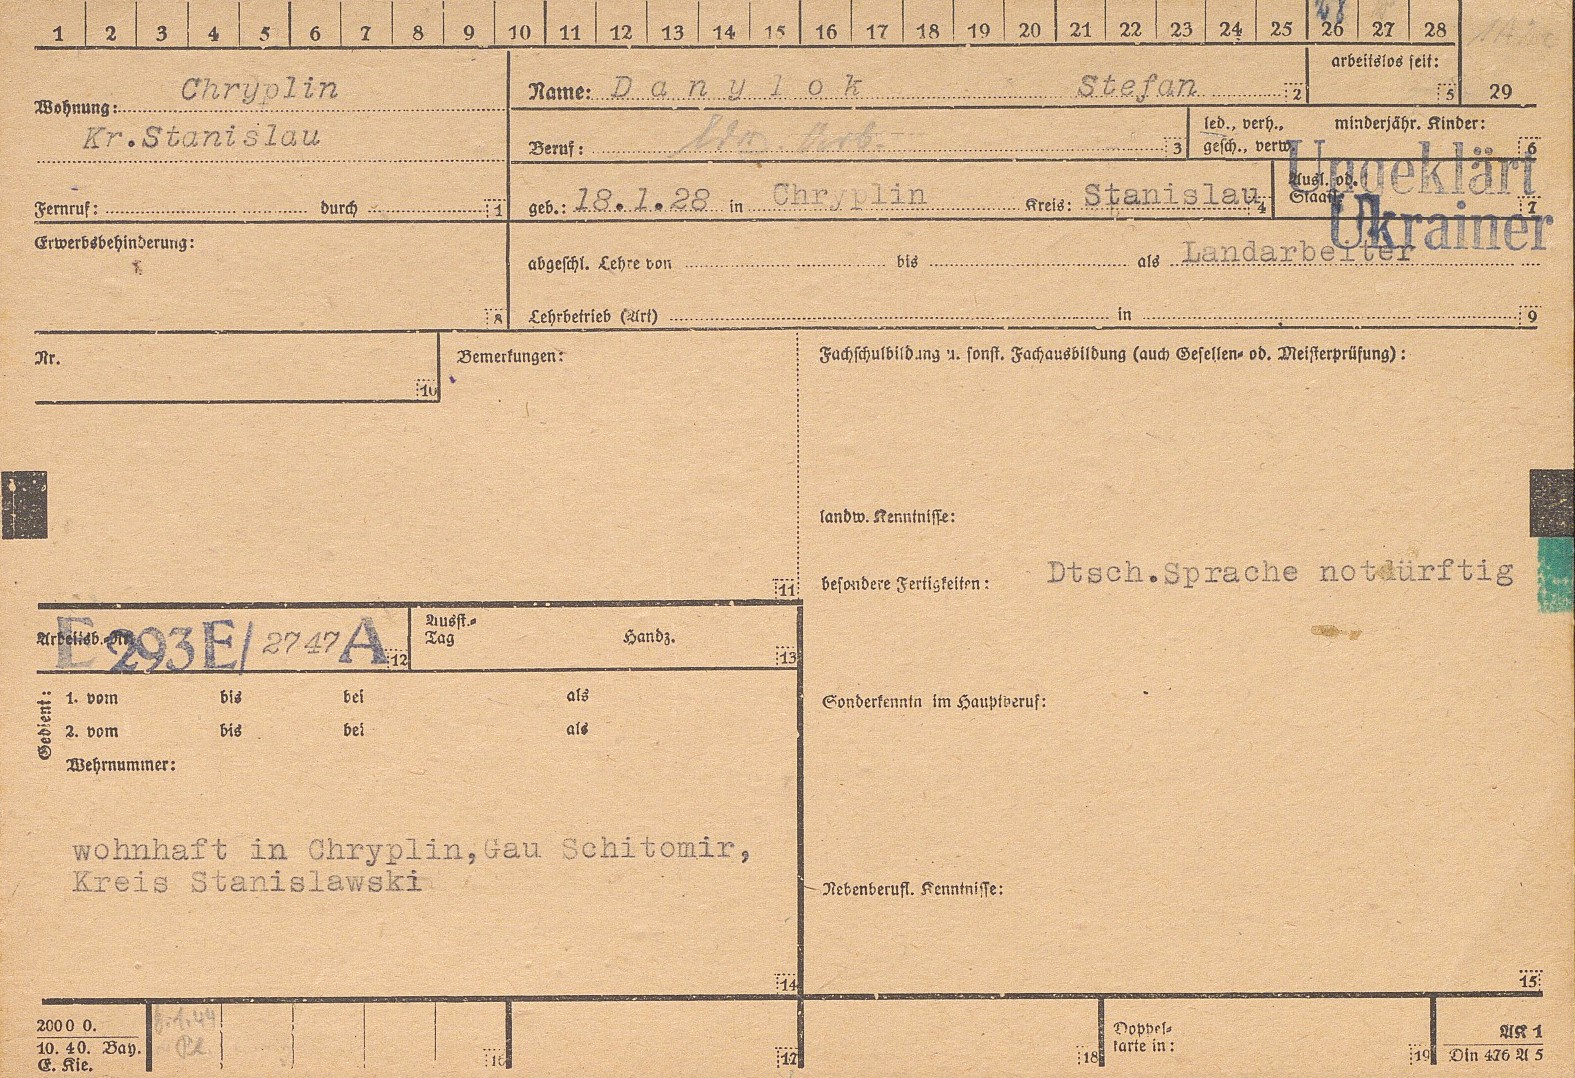 1 2 3 4 5 6 7 8 9 10 11 12 13 14 15 16 17 18 19 20 21 22 23 24 25 26 27 28
28
arbeitslos seit:
5
29
Wohnung: Chryplin
Kr.Stanislau
Name: D a n y l o k Stefan 2
Beruf: 3
led., verh.,
gesch., verw.
minderjähr. Kinder:
6
Fernruf: durch 1
geb.: 18.1.28 in Chryplin Kreis: Stanislau 4
Ausl. od.
Staatl.
7
Ungeklärt
Ukrainer
Erwerbsbehinderung:
8
abgeschl. Lehre von bis als Landarbeiter
Lehrbetrieb (Art) in 9
Nr.
10
Bemerkungen:
11
Fachschulbildung u. sonst. Fachausbildung (auch Gesellen- od. Meisterprüfung):
landw. Kenntnisse:
besondere Fertigkeiten: Dtsch.Sprache notdürftig
Arbeitsb.-Nr.
E 293 E/ 2747 A 12
Ausst.-
Tag
Handz.
13
Gedient:
1. vom bis bei als
2. vom bis bei als
Wehrnummer:
Sonderkenntn im Hauptberuf:
wohnhaft in Chryplin,Gau Schitomir,
Kreis Stanislawski
14
Nebenberufl. Kenntnisse:
15
2000 0.
10. 40. Bay.
E. Kie.
16
17
18
Doppel-
karte in:
19
AK 1
Din 476 A 5